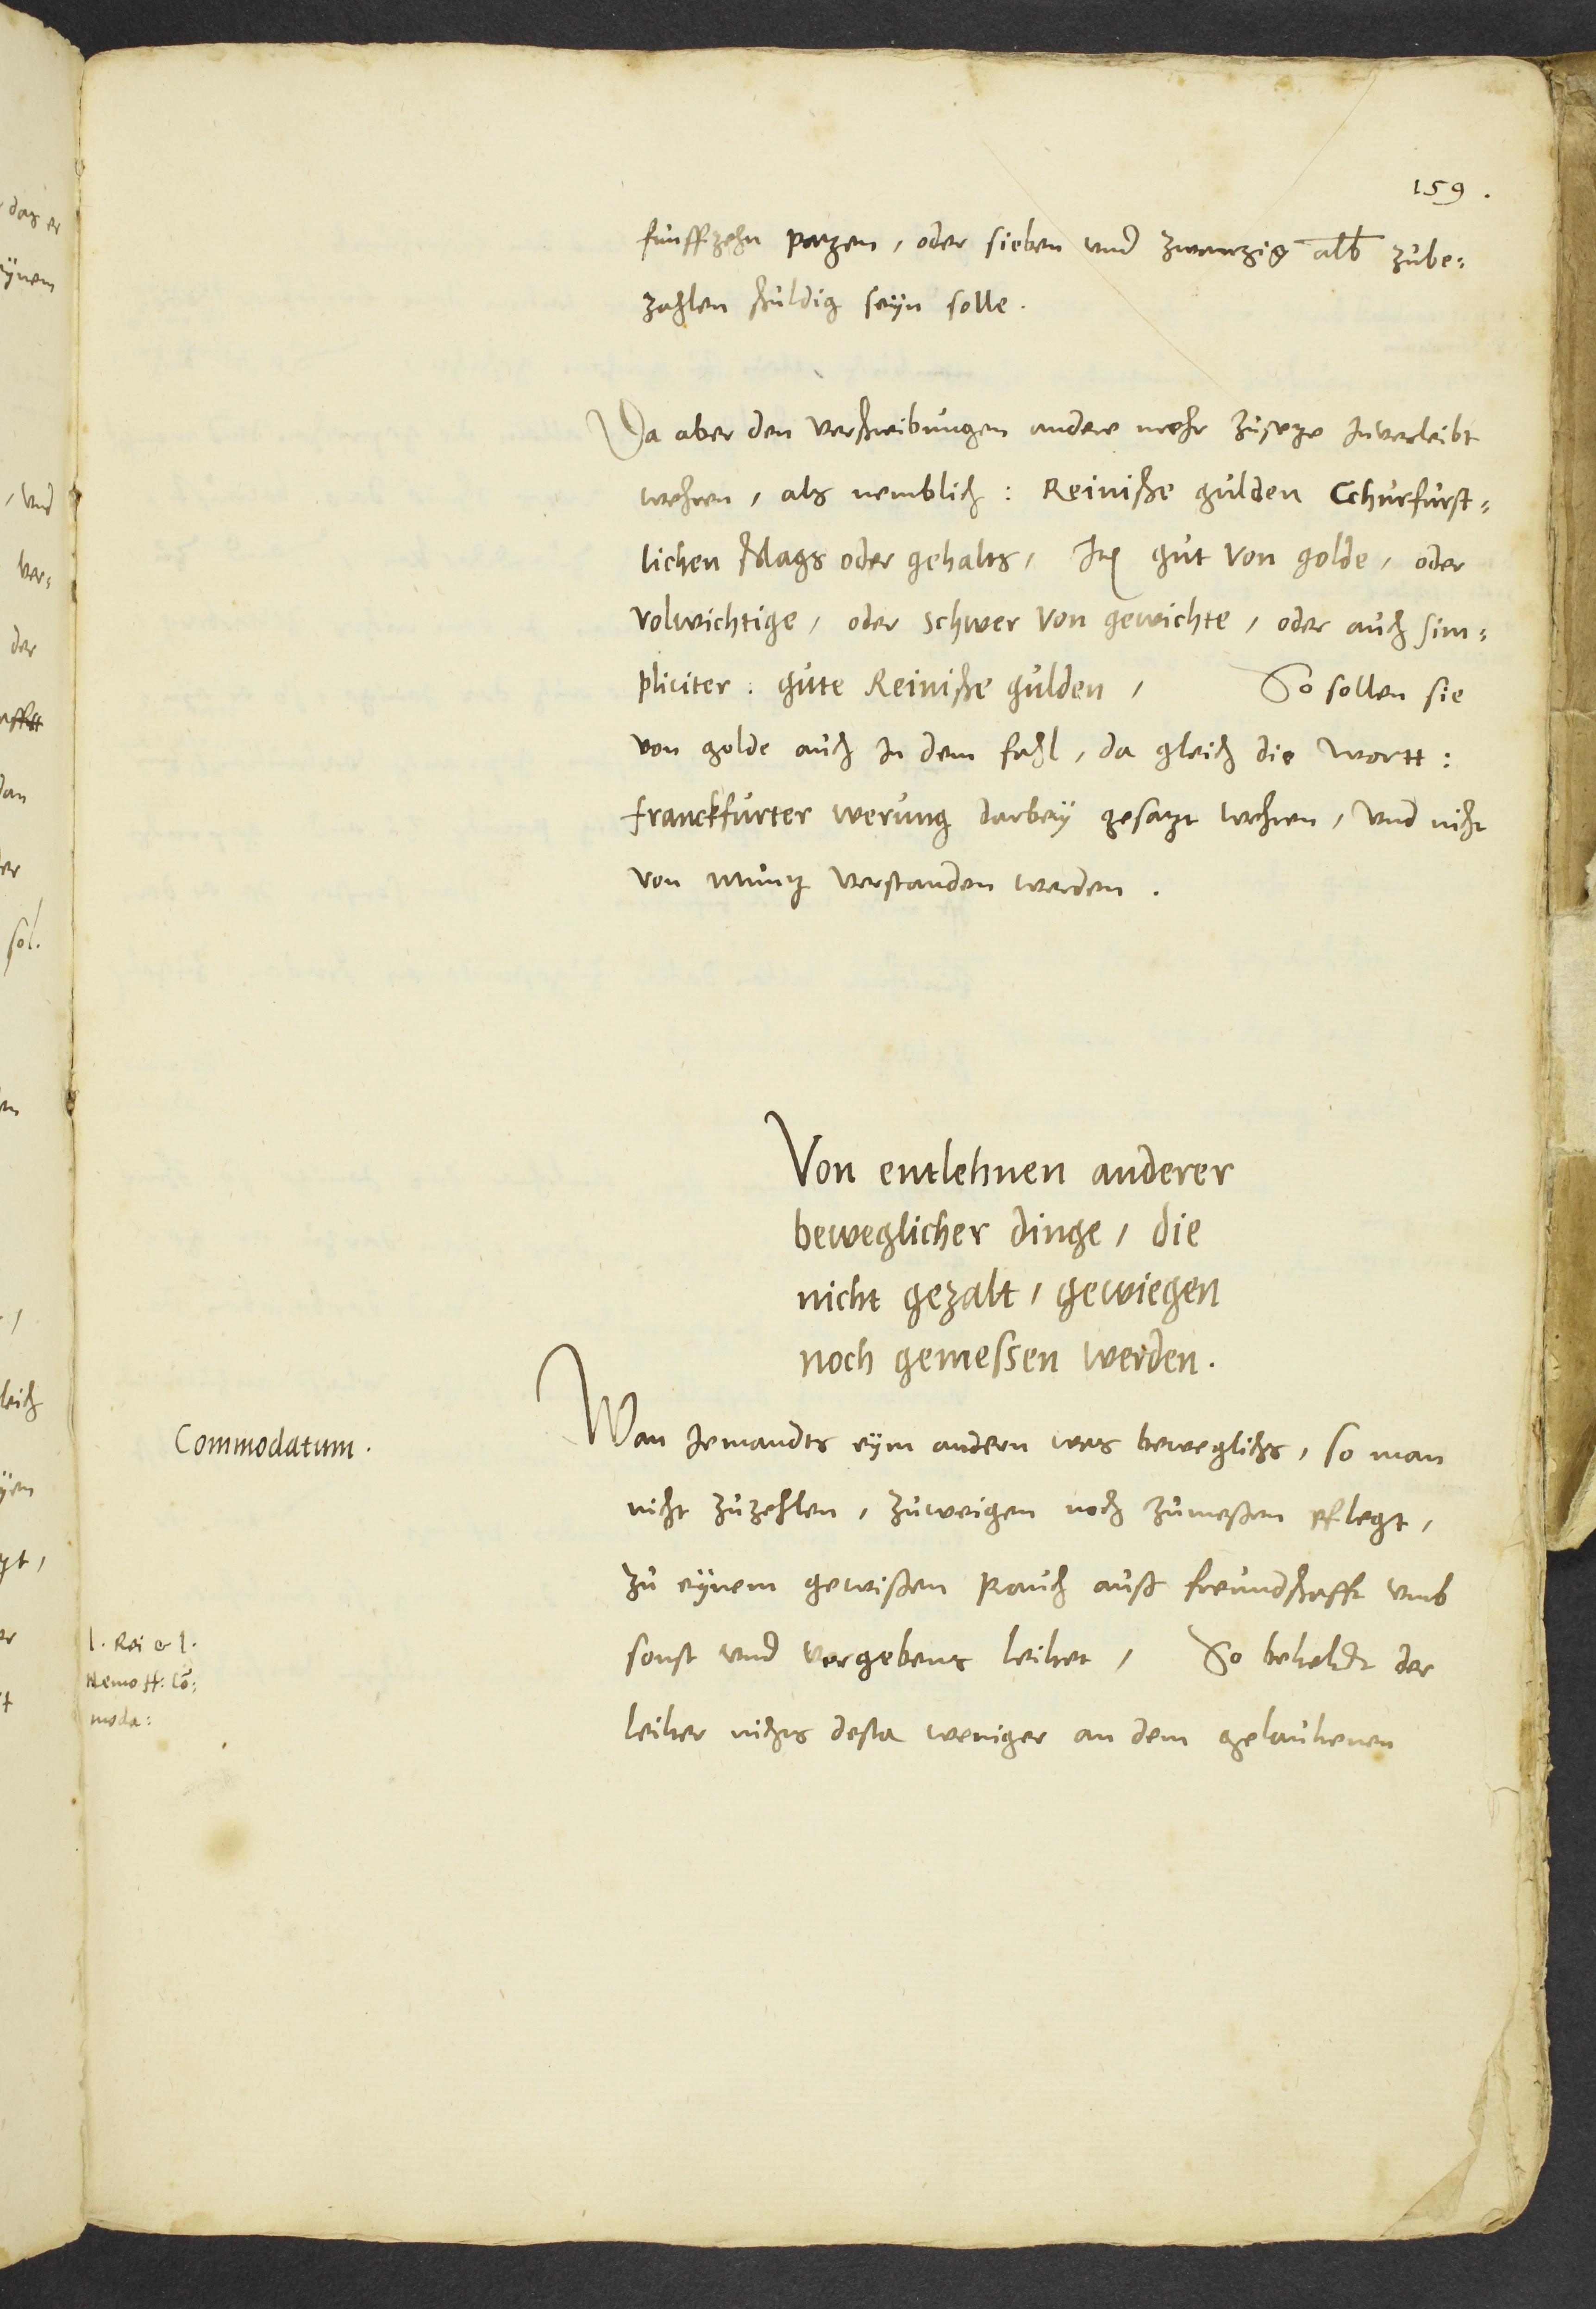 159.
funffzehn patzen, oder sieben und zwantzig alb zube=
zahlen schuldig seyn solle.
Da aber den verschreibungen andere mehr zusetze inverleibt
wehren, als nemblich: Reinische gulden Cchurfurst=
lichen schlags oder gehalts, Itē gut von golde, oder
volwichtige, oder schwer von gewichte, oder auch sim=
pliciter: gute Reinische gulden, So sollen sie
von golde auch in dem fahl, da gleich die wortt:
franckfurter werung darbey gesatzt wehren, und nicht
von muntz verstanden werden.
Von entlehnen anderer
beweglicher dinge, die
nicht gezalt, gewiegen
noch gemessen werden.
Commodatum.
Wan Jemandts eym andern was beweglichs, so man
nicht zuzehlen, zuweigen noch zumessen pflegt,
zu eynem gewissen prauch auß freundschafft umb
sonst und vergebens leihet, So beheldt der
l. Rei & l.
Nemo ff: Cō=
moda:
leiher nichts desta weniger an dem gelauhenen
das er
eynem
, und
ver=
der
dan
der
sol.
leich